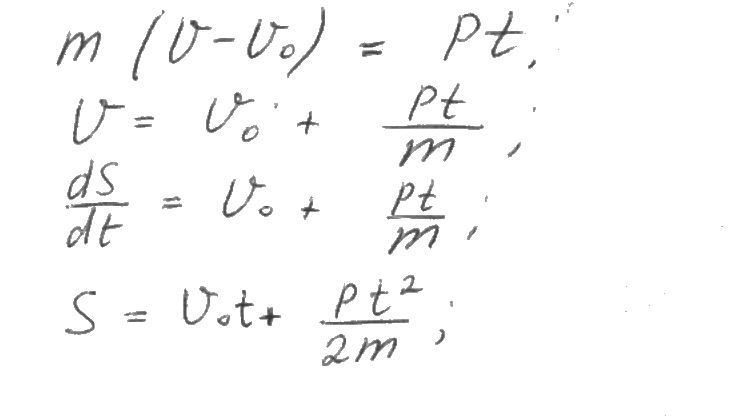 m (v - v₀) = pt;
v = v₀ + pt/m;
ds/dt = v₀ + pt/m;
s = v₀t + pt²/2m;